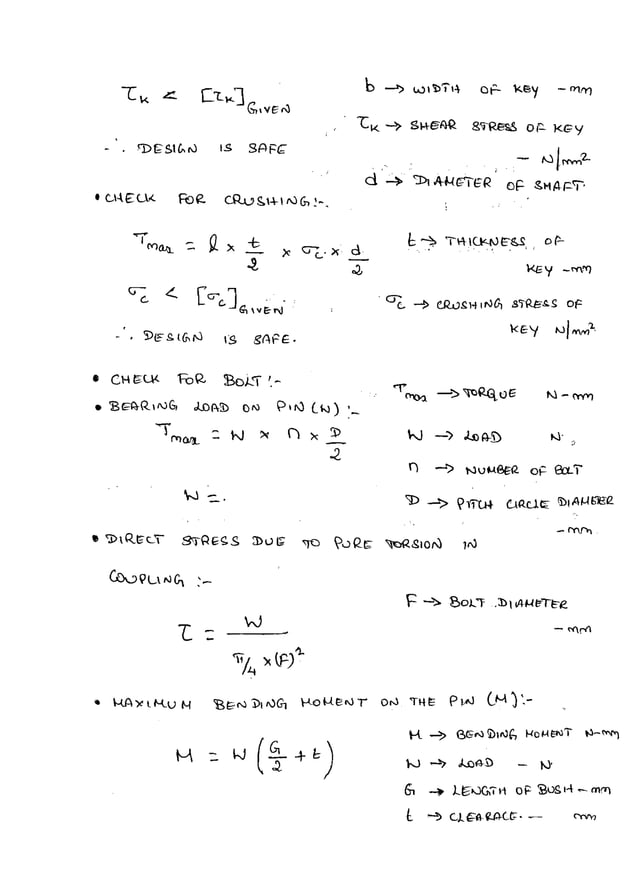 τK < [τK]GIVEN
b → WIDTH OF KEY - mm
τK → SHEAR STRESS OF KEY
- N/mm²
∴ DESIGN IS SAFE
d → DIAMETER OF SHAFT.
• CHECK FOR CRUSHING:-
Tmax = l × t/2 × σc × d/2
t → THICKNESS OF
KEY - mm
σc < [σc]GIVEN
σc → CRUSHING STRESS OF
KEY N/mm²
∴ DESIGN IS SAFE.
• CHECK FOR BOLT:-
Tmax → TORQUE N-mm
• BEARING LOAD ON PIN (W) :-
Tmax = W × n × D/2
W → LOAD N.
n → NUMBER OF BOLT
W =.
D → PITCH CIRCLE DIAMETER
- mm
• DIRECT STRESS DUE TO PURE TORSION IN
COUPLING :-
F → BOLT DIAMETER
- mm
τ = W / π/4 × (F)²
• MAXIMUM BENDING MOMENT ON THE PIN (M):-
M = W (G/2 + t)
M → BENDING MOMENT N-mm
W → LOAD - N
G → LENGTH OF BUSH - mm
t → CLEARACE. - mm